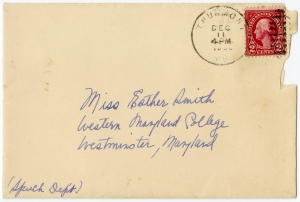 THURMONT
DEC
11
4 PM
MD
2 CENTS 2
Miss Esther Smith
Western Maryland College
Westminster, Maryland
(Speech Dept.)